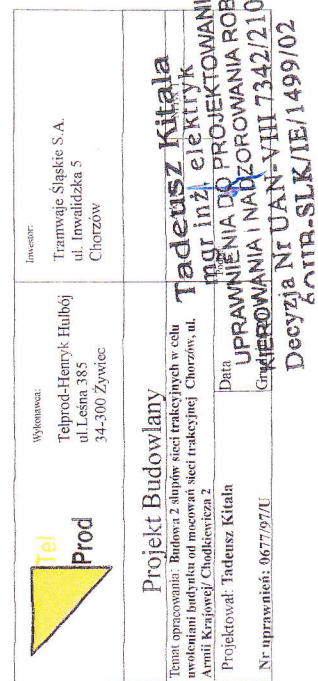 Tel
Prod
Wykonawca:
Telprod-Henryk Hulbój
ul.Leśna 385
34-300 Żywiec
Inwestor:
Tramwaje Śląskie S.A.
ul. Inwalidzka 5
Chorzów
Projekt Budowlany
Temat opracowania: Budowa 2 słupów sieci trakcyjnych w celu
uwoleniani budynku od mocowań sieci trakcyjnej Chorzów, ul.
Armii Krajowej/ Chodkiewicza 2
Projektował: Tadeusz Kitala
Data
Nr uprawnień: 0677/97/U
Tadeusz Kitala
mgr inż. elektryk
UPRAWNIENIA DO PROJEKTOWANI
KIEROWANIA I NADZOROWANIA ROB
Decyzja Nr UAN-VIII 7342/210